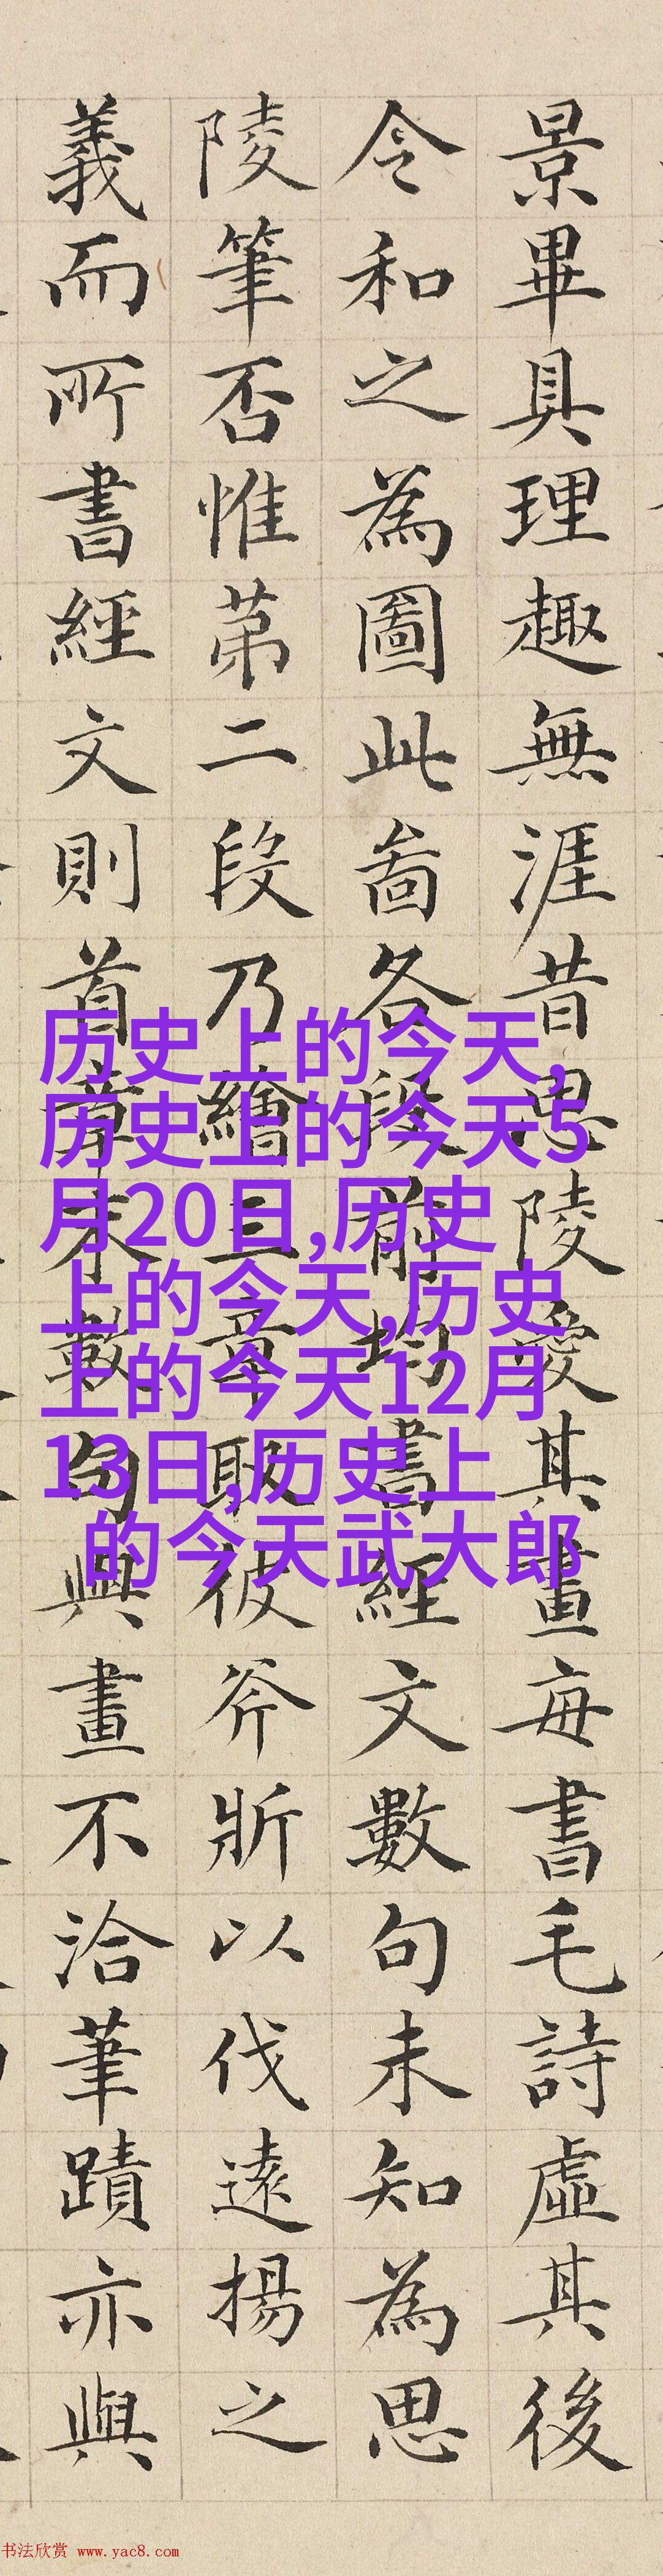 景畢具理趣無涯昔思陵愛其畫每書毛詩虛其後
令和之為圖此啚各段前均書經文數句未知為思
陵筆否惟苐二段乃繪三章取彼斧斨以伐遠揚之
義而所書經文則首章末數句與畫不洽筆蹟亦與
历史上的今天,
历史上的今天5
月20日,历史
上的今天,历史
上的今天12月
13日,历史上
的今天武大郎
书法欣赏 www.yac8.com